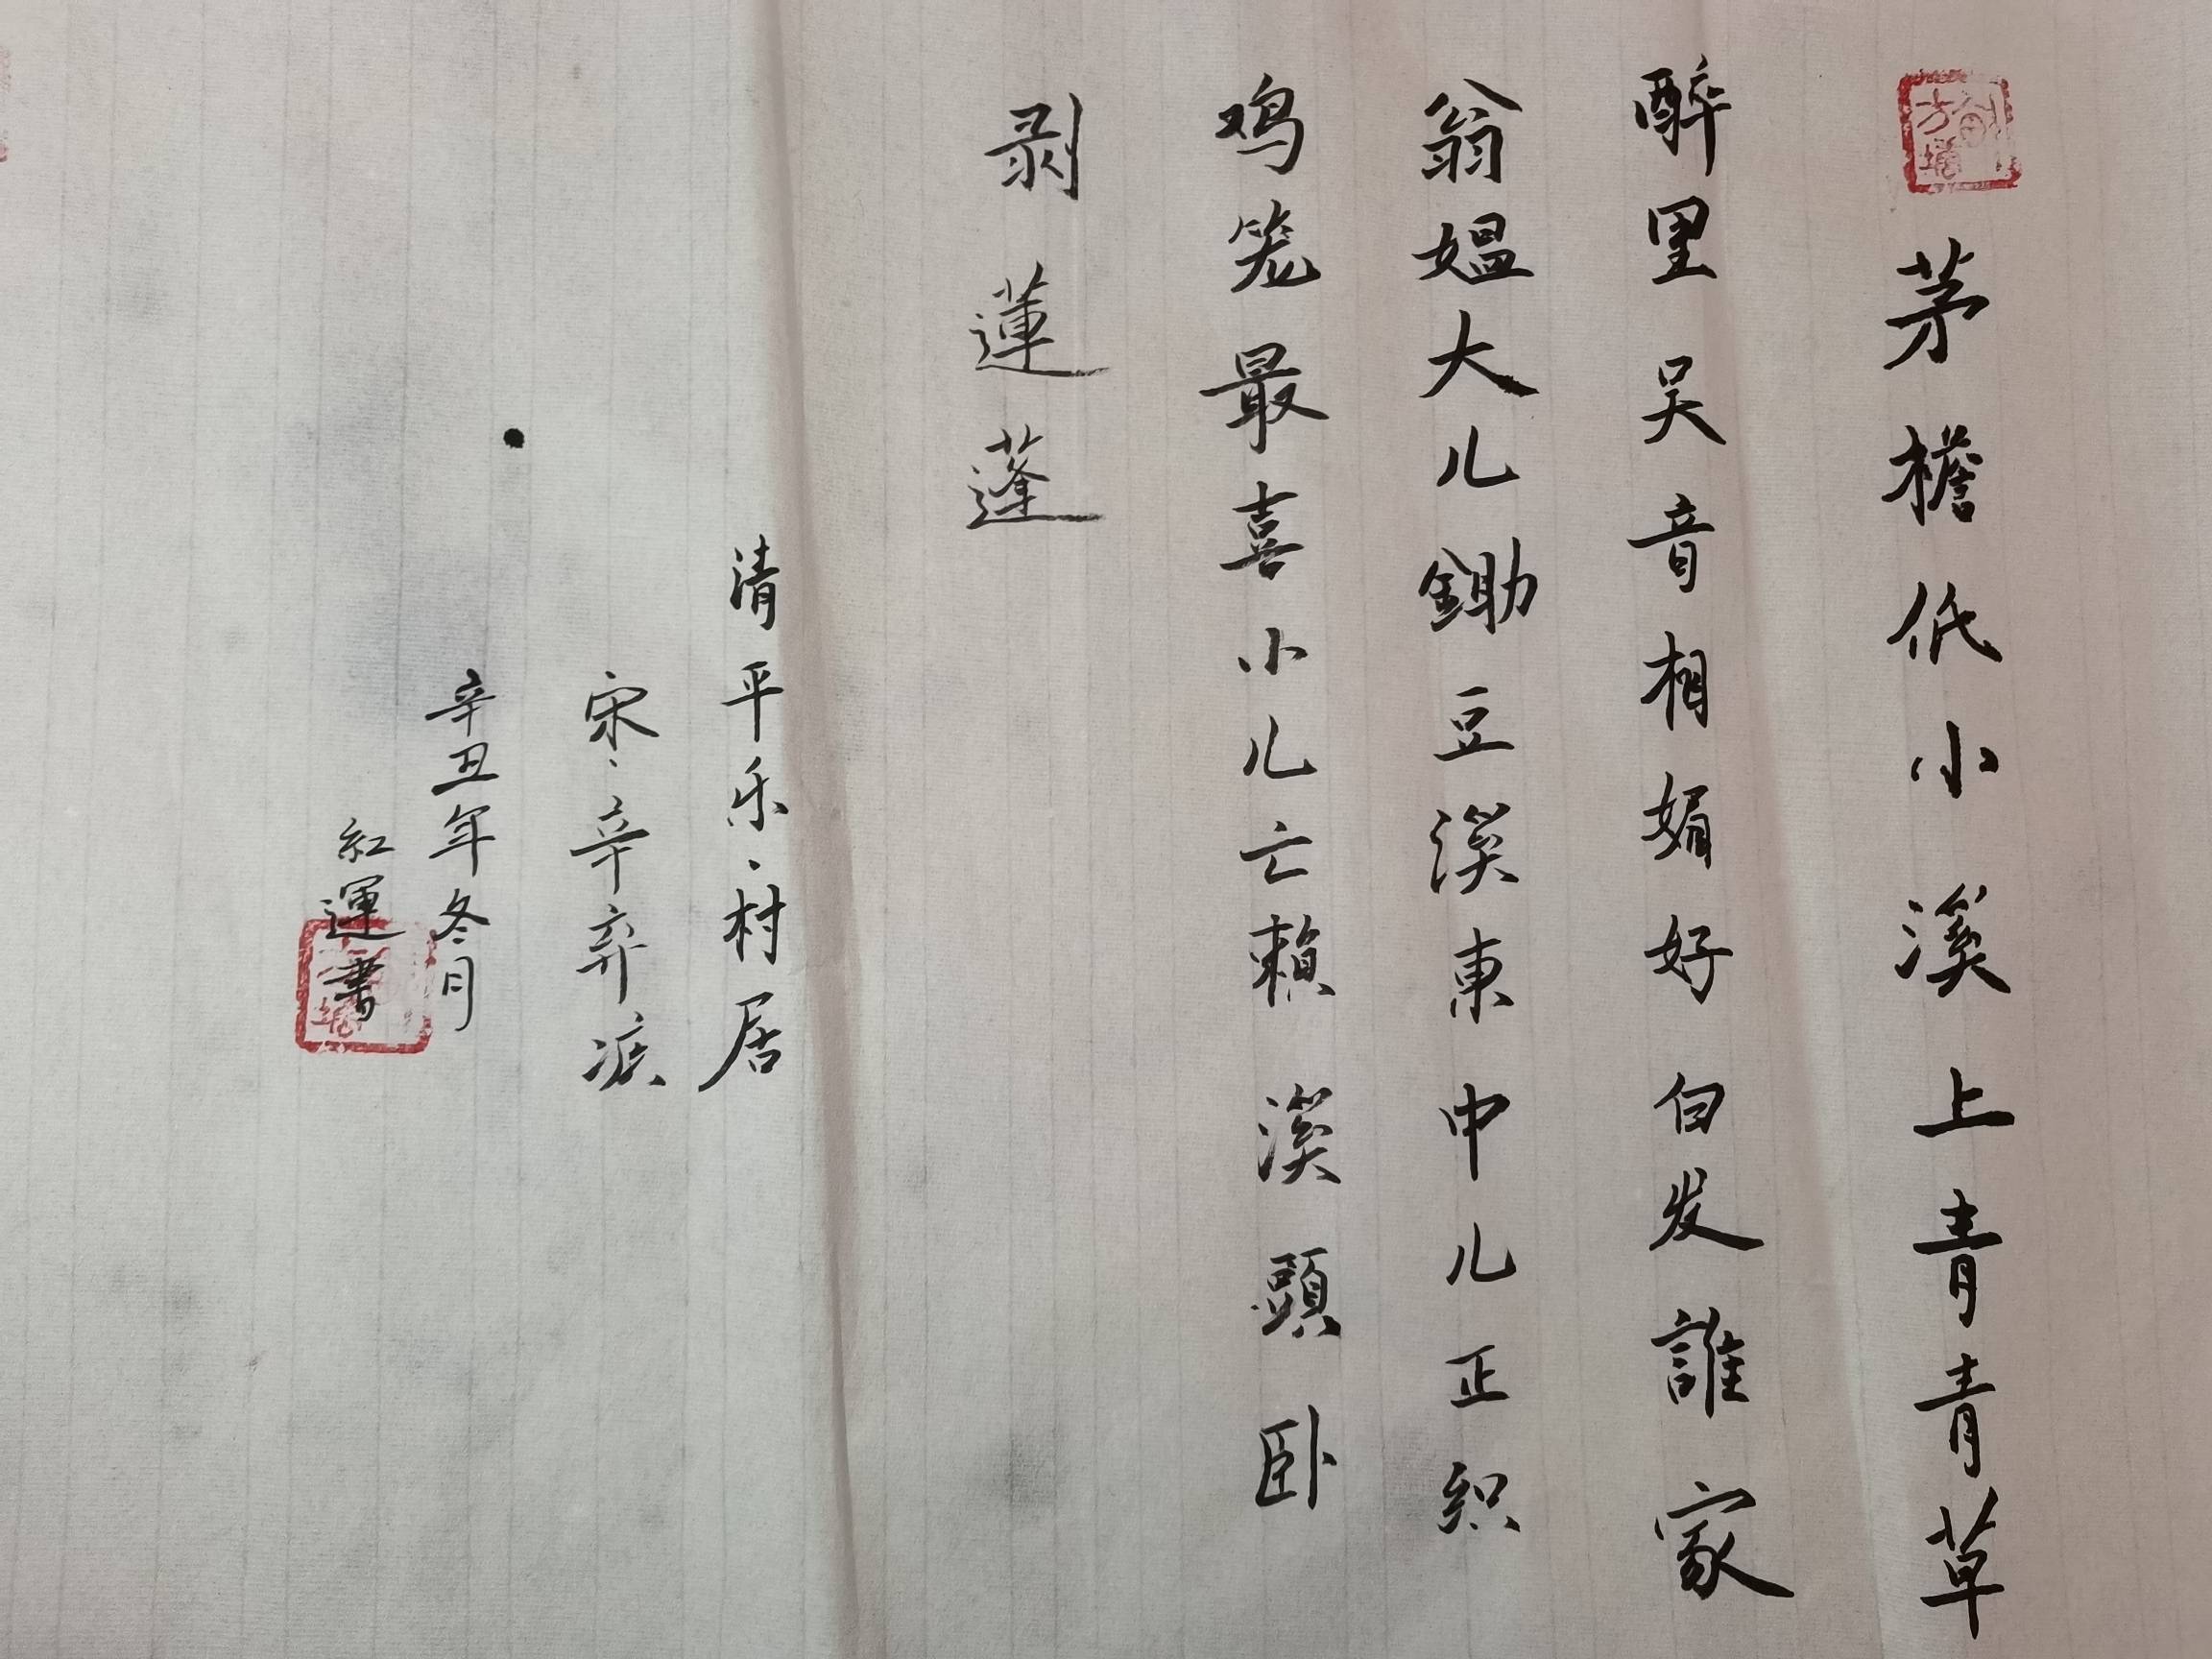 茅檐低小溪上青青草
醉里吴音相媚好白发誰家
翁媪大儿鋤豆溪東中儿正织
鸡笼最喜小儿亡賴溪頭卧
剥蓮蓬
清平乐·村居
宋·辛弃疾
辛丑年冬月
紅運書